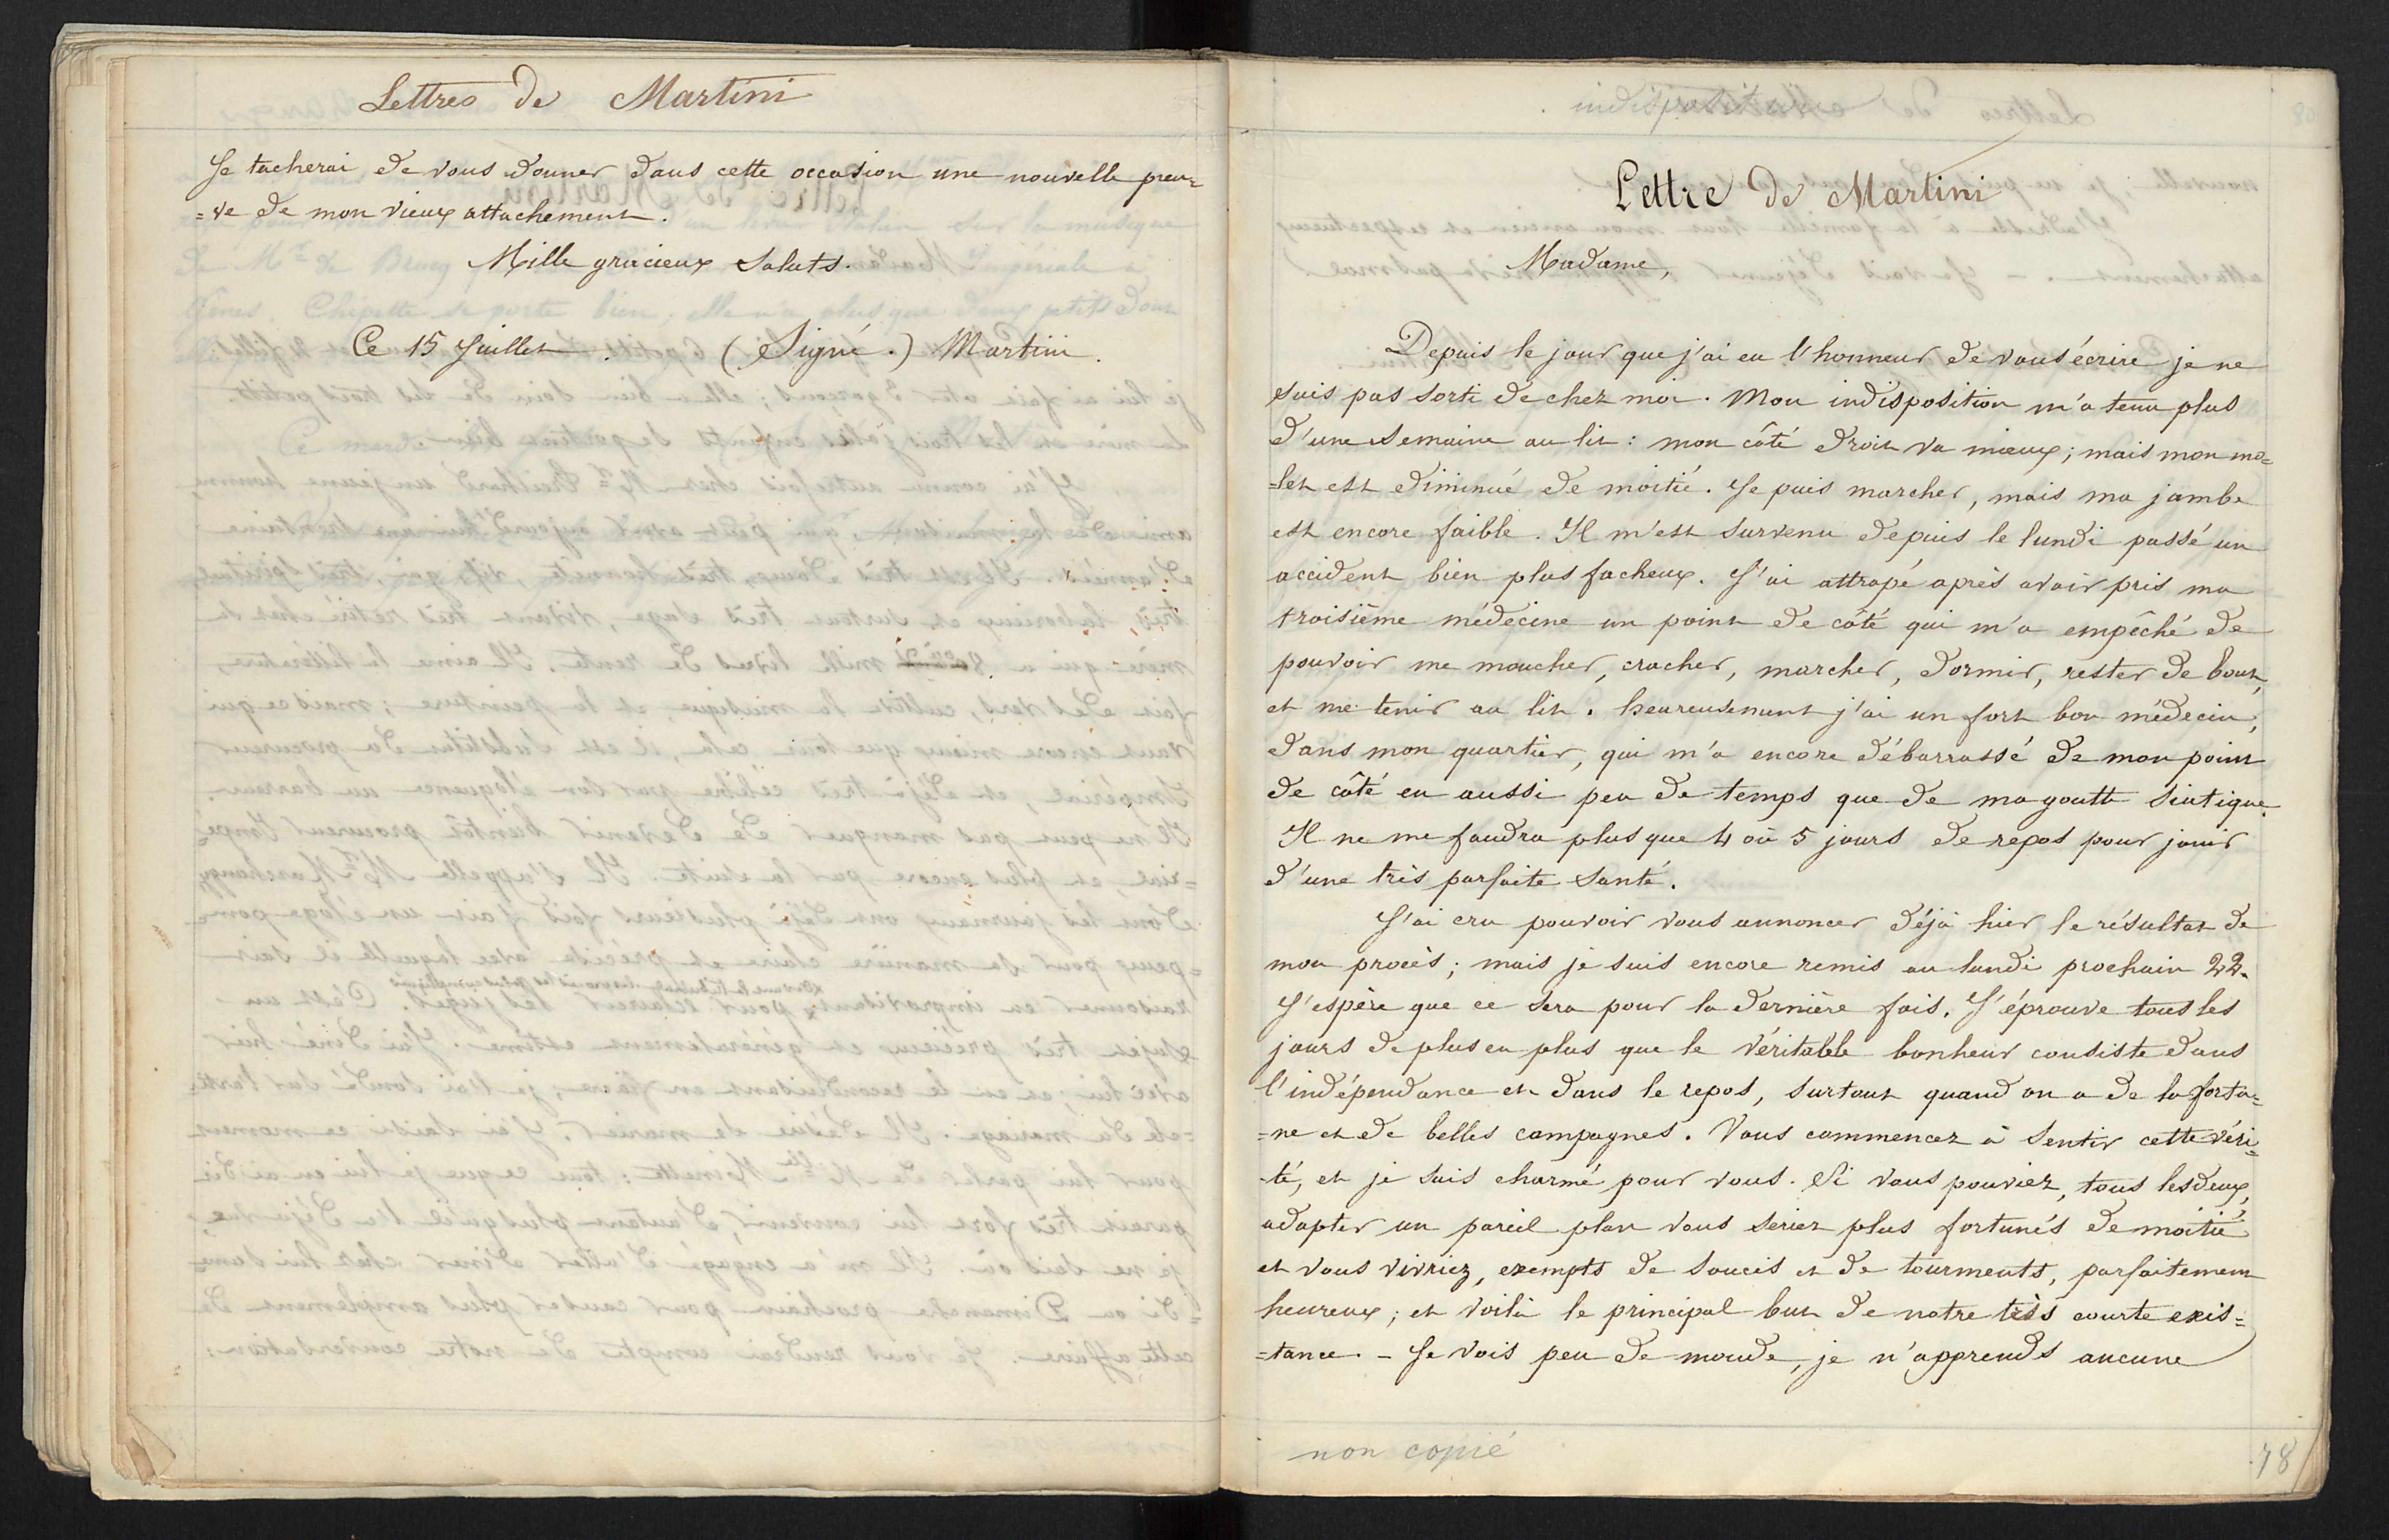 Lettres de Martini
Je tacherai de vous donner dans cette occasion une nouvelle preu=
=ve de mon vieux attachement.
Mille gracieux saluts.
Ce 15 Juillet. (Signé.) Martini.
indisposition.
Lettre de Martini
Madame,
Depuis le jour que j'ai eu l'honneur de vous écrire je ne
suis pas sorti de chez moi. Mon indisposition m'a tenu plus
d'une semaine au lit : mon côté droit va mieux ; mais mon mo=
=let est diminué de moitié. Je puis marcher, mais ma jambe
est encore faible. Il m'est survenu depuis le lundi passé un
accident bien plus facheux. J'ai attrapé après avoir pris ma
troisième médecine un point de côté qui m'a empêché de
pouvoir me moucher, cracher, marcher, dormir, rester de bout,
et me tenir au lit. heureusement j'ai un fort bon médecin,
dans mon quartier, qui m'a encore débarrassé de mon point
de côté en aussi peu de temps que de ma goutte siatique.
Il ne me faudra plus que 4 où 5 jours de repos pour jouir
d'une très parfaite santé.
J'ai cru pouvoir vous annoncer déjà hier le résultat de
mon procès ; mais je suis encore remis au lundi prochain 22.
J'espère que ce sera pour la dernière fois. J'éprouve tous les
jours de plus en plus que le véritable bonheur consiste dans
l'indépendance et dans le repos, surtout quand on a de la fortu=
=ne et de belles campagnes. Vous commencez à sentir cette véri=
-té, et je suis charmé pour vous. Si vous pouviez, tous les deux,
adopter un pareil plan vous seriez plus fortunés de moitié
et vous vivriez, exempts de soucis et de tourments, parfaitement
heureux ; et voilà le principal but de notre très courte exis=
=tance. - Je vois peu de monde, je n'apprends aucune
non copié
78